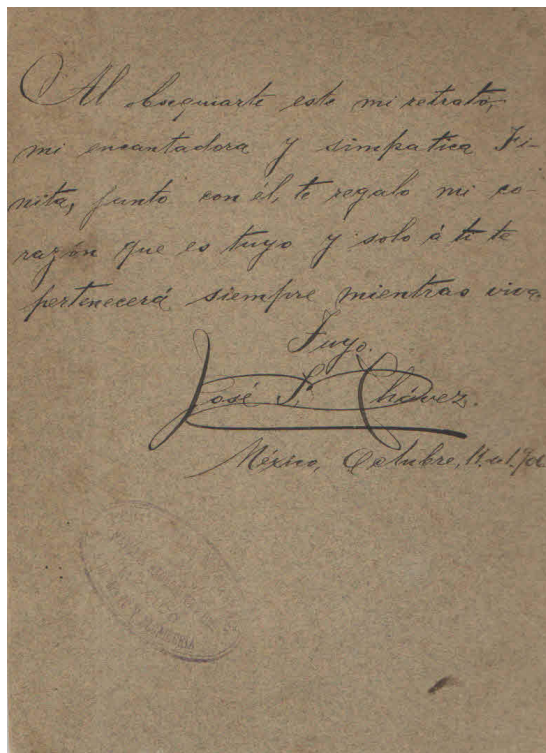 Al obsequiarte este mi retrato,
mi encantadora y simpatica Fi-
nita, junto con él, te regalo mi co-
razón que es tuyo y solo á ti te
pertenecerá siempre mientras viva.
Tuyo.
José Chávez.
México, Octubre,